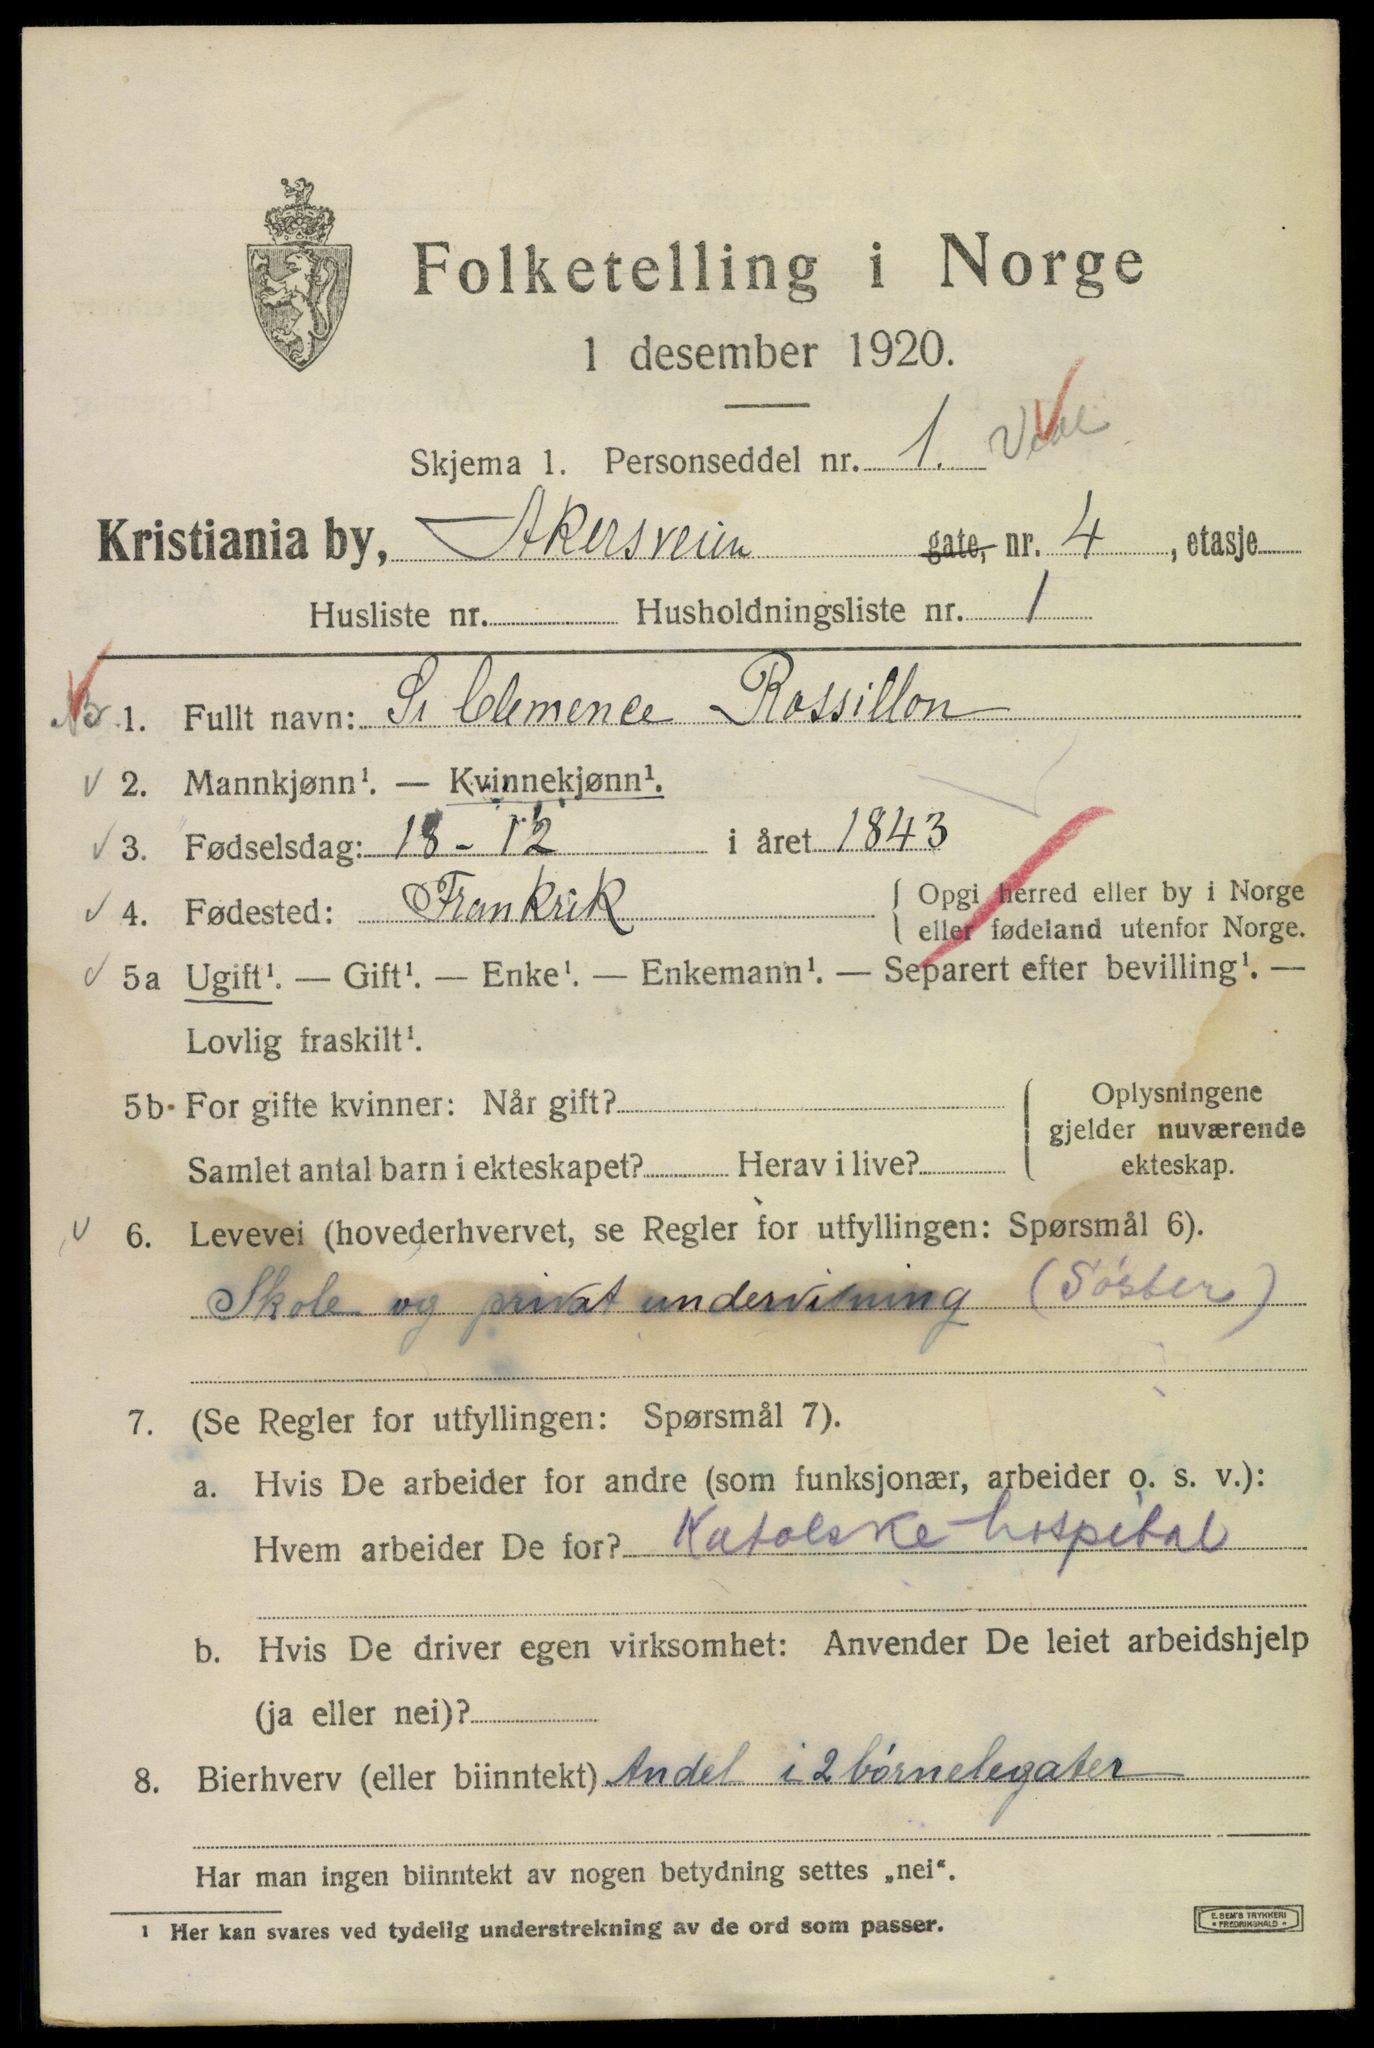 Folketelling i Norge
1 desember 1920.
Skjema 1. Personseddel nr. 1.
Kristiania by, Akersveien gate, nr. 4, etasje
Husliste nr. Husholdningsliste nr. 1
1. Fullt navn: Sr Clemence Rossillon
2. Mannkjønn¹. — Kvinnekjønn¹.
3. Fødselsdag: 18 - 12 i året 1843
4. Fødested: Frankrik { Opgi herred eller by i Norge
eller fødeland utenfor Norge.
5a Ugift¹. — Gift¹. — Enke¹. — Enkemann¹. — Separert efter bevilling¹. —
Lovlig fraskilt¹.
5b. For gifte kvinner: Når gift? { Oplysningene
gjelder nuværende
Samlet antal barn i ekteskapet? Herav i live? ekteskap.
6. Levevei (hovederhvervet, se Regler for utfyllingen: Spørsmål 6).
Skole og privat undervisning (Søster)
7. (Se Regler for utfyllingen: Spørsmål 7).
a. Hvis De arbeider for andre (som funksjonær, arbeider o. s. v.):
Hvem arbeider De for? Katolske hospital
b. Hvis De driver egen virksomhet: Anvender De leiet arbeidshjelp
(ja eller nei)?
8. Bierhverv (eller biinntekt) Andel i 2 børnelegater
Har man ingen biinntekt av nogen betydning settes „nei“.
¹ Her kan svares ved tydelig understrekning av de ord som passer.
E. SEM'S TRYKKERI
• FREDRIKSHALD •